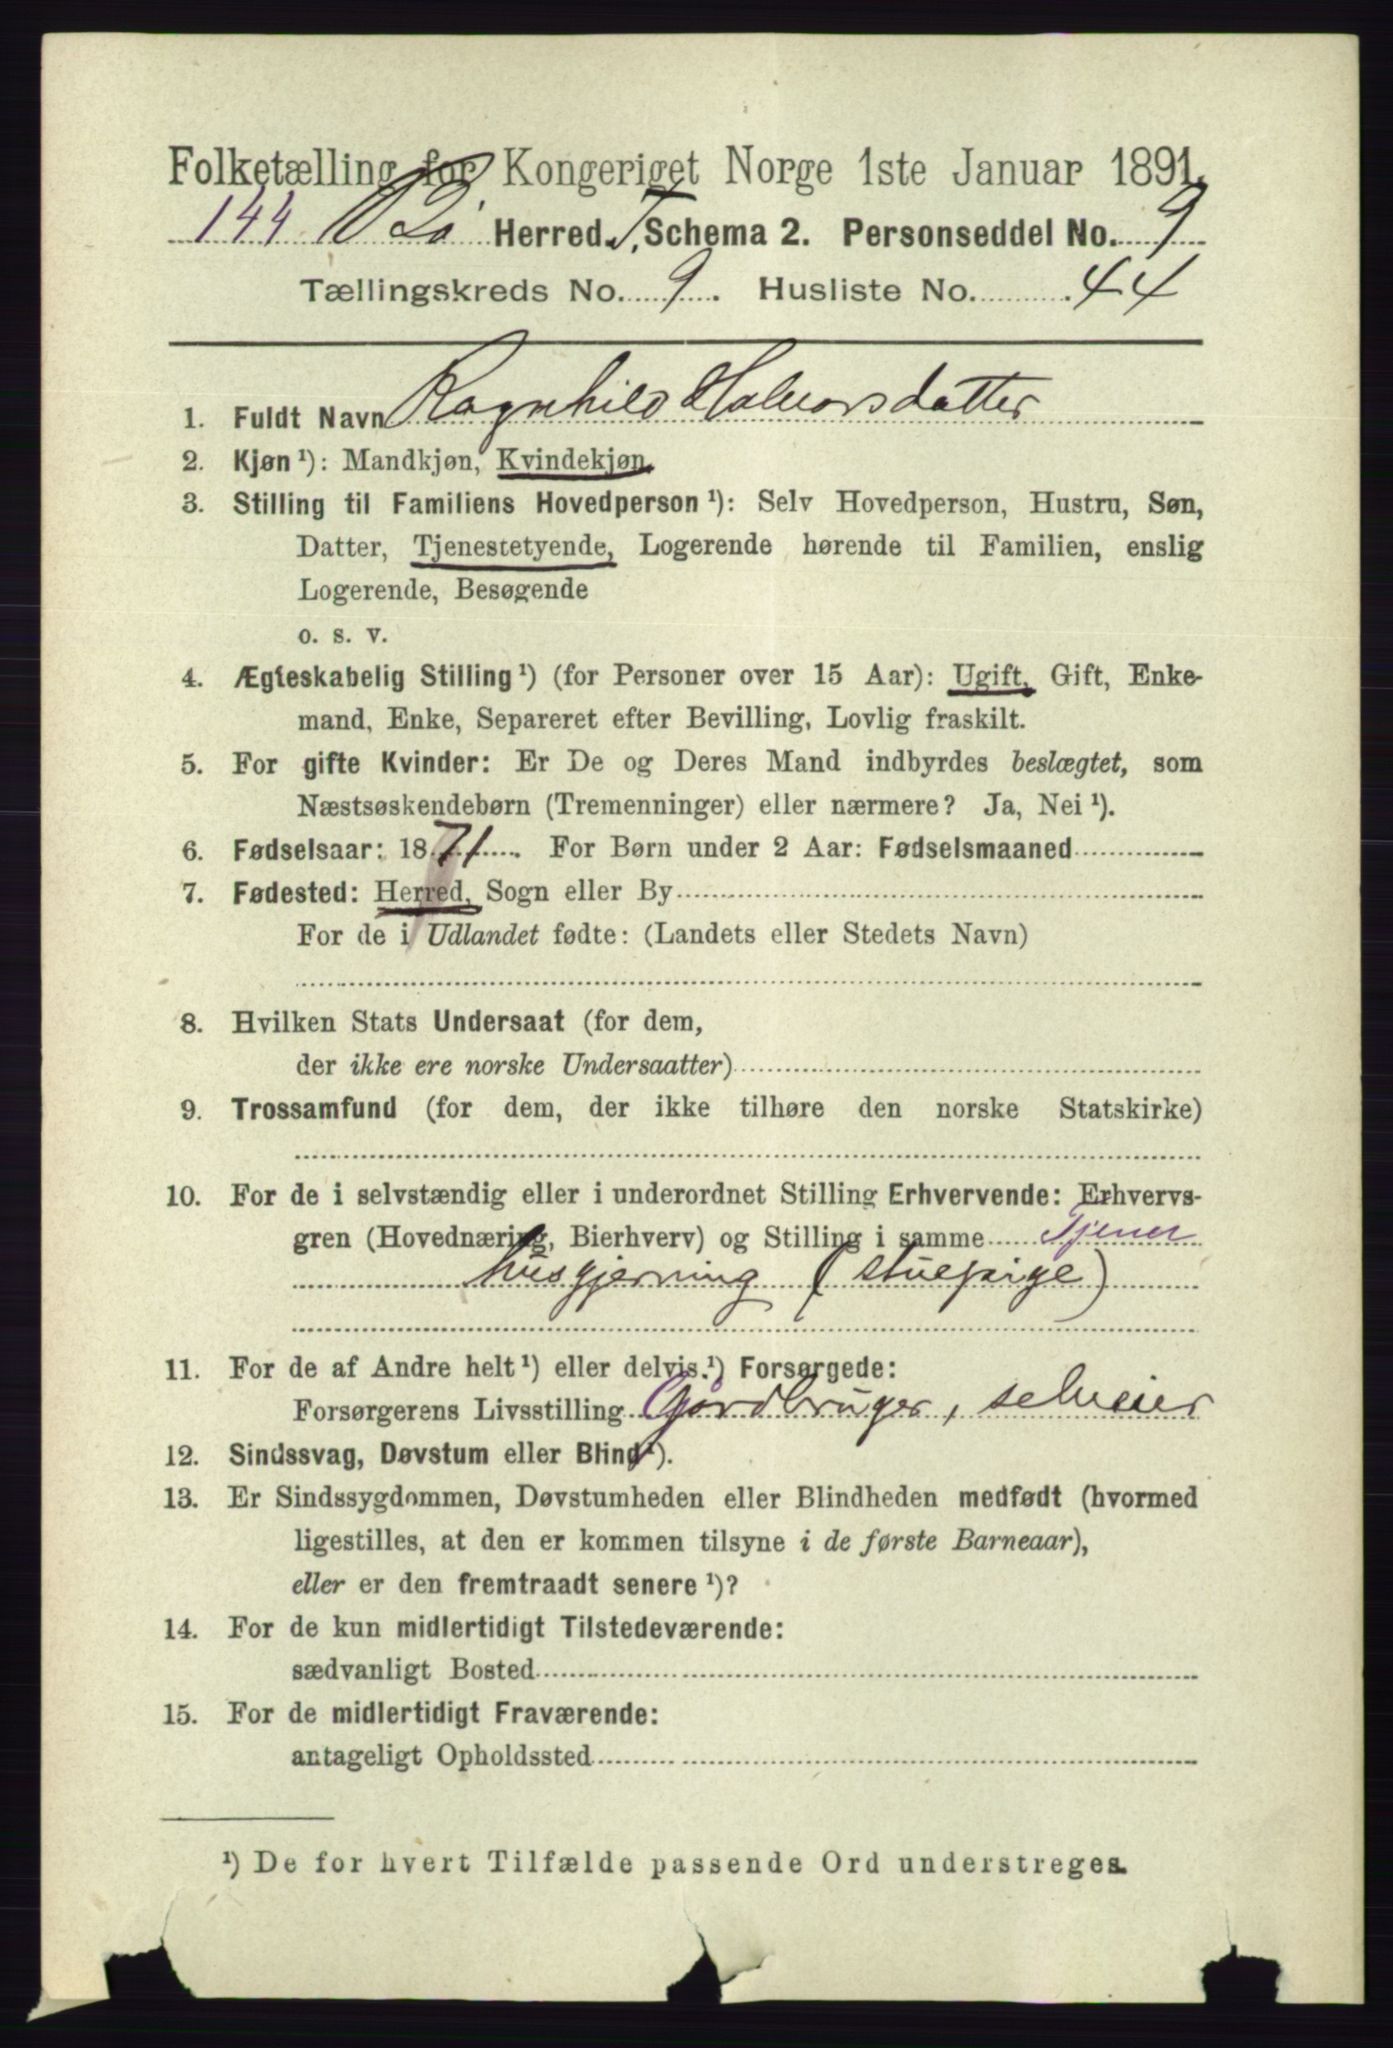 Folketælling for Kongeriget Norge 1ste Januar 1891.
144 Bø Herred. T. Schema 2. Personseddel No. 9
Tællingskreds No. 9. Husliste No. 44
1. Fuldt Navn Ragnhild Halvorsdatter
2. Kjøn ¹): Mandkjøn, Kvindekjøn.
3. Stilling til Familiens Hovedperson ¹): Selv Hovedperson, Hustru, Søn,
Datter, Tjenestetyende, Logerende hørende til Familien, enslig
Logerende, Besøgende
o. s. v.
4. Ægteskabelig Stilling ¹) (for Personer over 15 Aar): Ugift, Gift, Enke-
mand, Enke, Separeret efter Bevilling, Lovlig fraskilt.
5. For gifte Kvinder: Er De og Deres Mand indbyrdes beslægtet, som
Næstsøskendebørn (Tremenninger) eller nærmere? Ja, Nei ¹).
6. Fødselsaar: 1871. For Børn under 2 Aar: Fødselsmaaned
7. Fødested: Herred, Sogn eller By
For de i Udlandet fødte: (Landets eller Stedets Navn)
8. Hvilken Stats Undersaat (for dem,
der ikke ere norske Undersaatter)
9. Trossamfund (for dem, der ikke tilhøre den norske Statskirke)
10. For de i selvstændig eller i underordnet Stilling Erhvervende: Erhvervs-
gren (Hovednæring, Bierhverv) og Stilling i samme Tjener
husgjerning (stuepige)
11. For de af Andre helt ¹) eller delvis. ¹) Forsørgede:
Forsørgerens Livsstilling Gårdbruger, selveier
12. Sindssvag, Døvstum eller Blind ¹).
13. Er Sindssygdommen, Døvstumheden eller Blindheden medfødt (hvormed
ligestilles, at den er kommen tilsyne i de første Barneaar),
eller er den fremtraadt senere ¹)?
14. For de kun midlertidigt Tilstedeværende:
sædvanligt Bosted
15. For de midlertidigt Fraværende:
antageligt Opholdssted
¹) De for hvert Tilfælde passende Ord understreges.